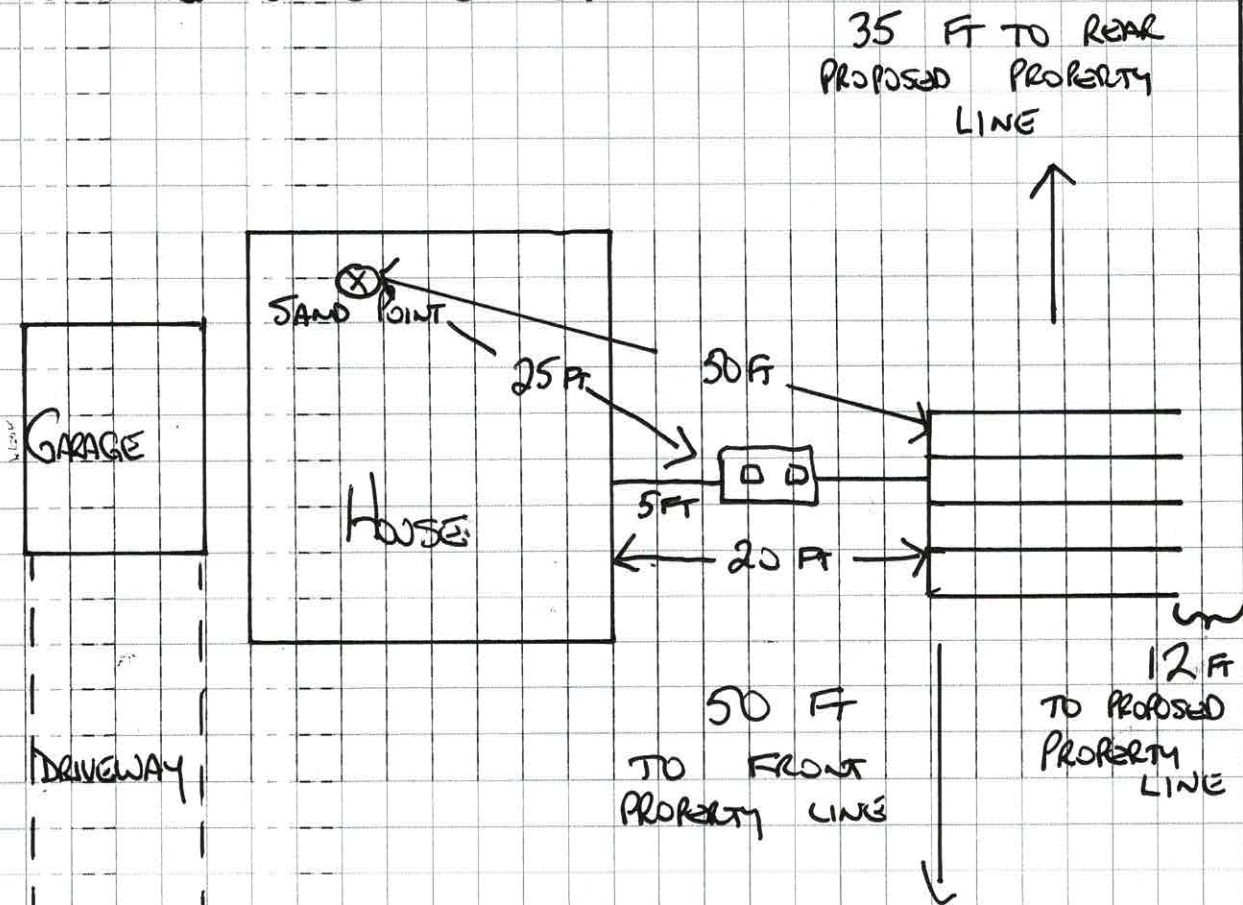 35 FT TO REAR
PROPOSED PROPERTY
LINE
SAND POINT
25 FT
50 FT
GARAGE
HOUSE
5 FT
20 FT
12 FT
TO PROPOSED
PROPERTY
LINE
50 FT
TO FRONT
PROPERTY LINE
DRIVEWAY